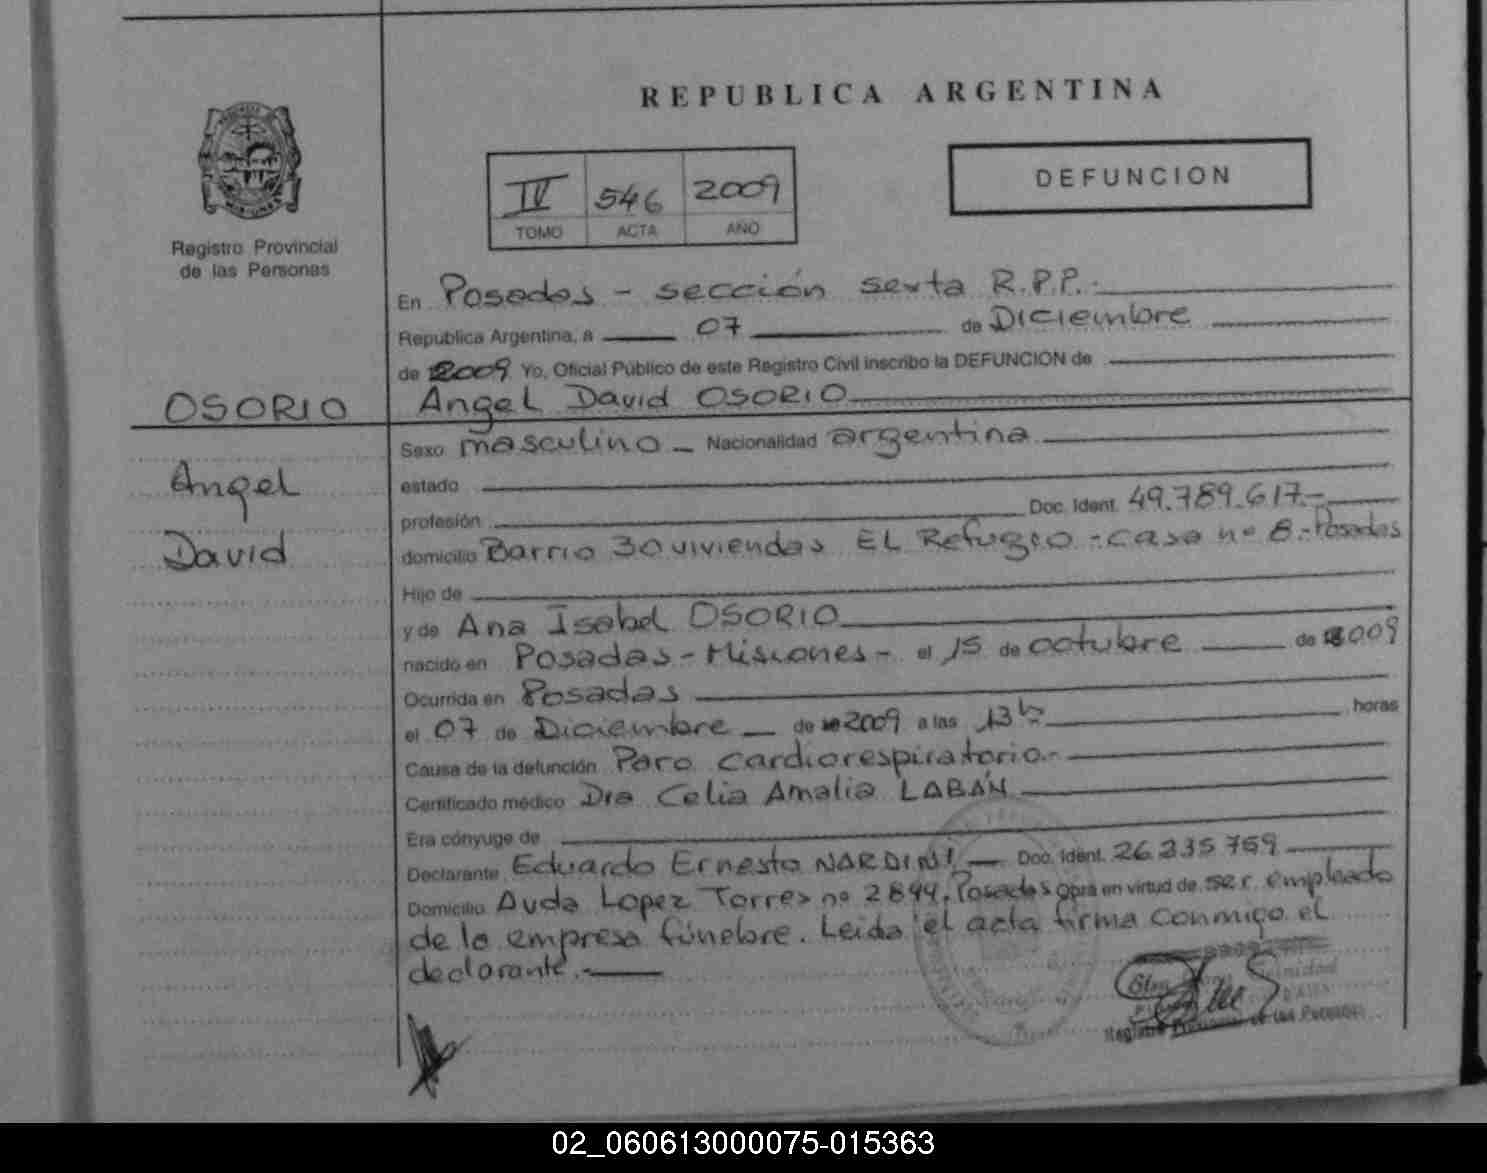 REPUBLICA ARGENTINA
DEFUNCION
IV 546 2009
TOMO ACTA AÑO
Registro Provincial
de las Personas
En Posadas - sección sexta R.P.P.-
Republica Argentina, a 07 de Diciembre
de 2009 Yo, Oficial Público de este Registro Civil inscribo la DEFUNCION de
OSORIO
Angel David OSORIO
Angel
David
Sexo masculino Nacionalidad argentina
estado
profesión Doc. Ident. 49.789.617.-
domicilio Barrio 30 viviendas EL Refugio - casa nº 8.- Posadas
Hijo de
y de Ana Isabel OSORIO
nacido en Posadas - Misiones - el 15 de octubre de 2009
Ocurrida en Posadas
el 07 de Diciembre de 2009 a las 13 hs horas
Causa de la defunción Paro cardiorespiratorio.-
Certificado médico Dra Celia Amalia LABÁN
Era cónyuge de
Declarante Eduardo Ernesto NARDINI Doc. Ident. 26.235.759
Domicilio Avda Lopez Torres nº 2844. Posadas obra en virtud de ser empleado
de la empresa fúnebre. Leida el acta firma conmigo el
declarante.-
Registro Provincial de las Personas
02_060613000075-015363